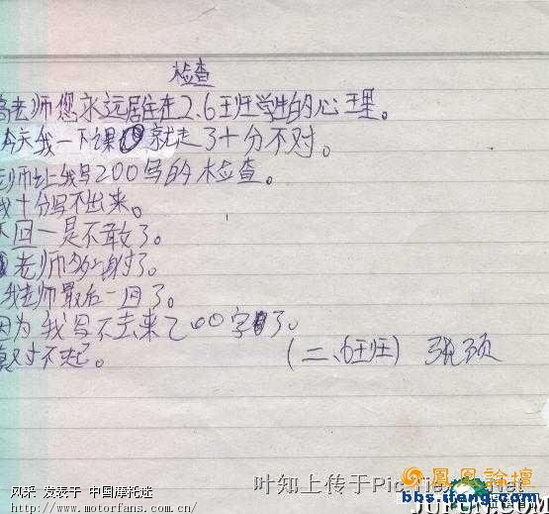 检查
老师您永远居住在2.6班学生的心里。
今天我一下课就走了十分不对。
老师让我写200写的检查。
我十分写不出来。
下回一是不敢了。
老师
我老师最后一回了。
因为我写不去来200字了。
真对不起。
(二、6班) 张
叶知上传于Pic.
凤凰论坛
bbs.ifeng.com
风采 发表于 中国摩托迷
http://www.motorfans.com.cn